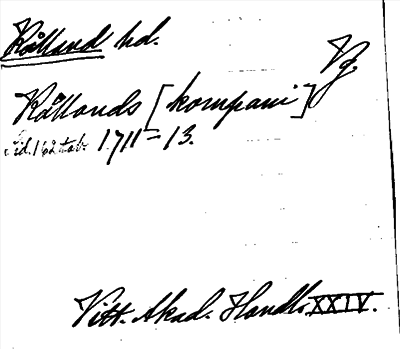 Kålland hd.
Vg.
Kållands [kompani]
sid. 162 tab. 1711-13.
Vitt. Akad. Handl. XXIV.